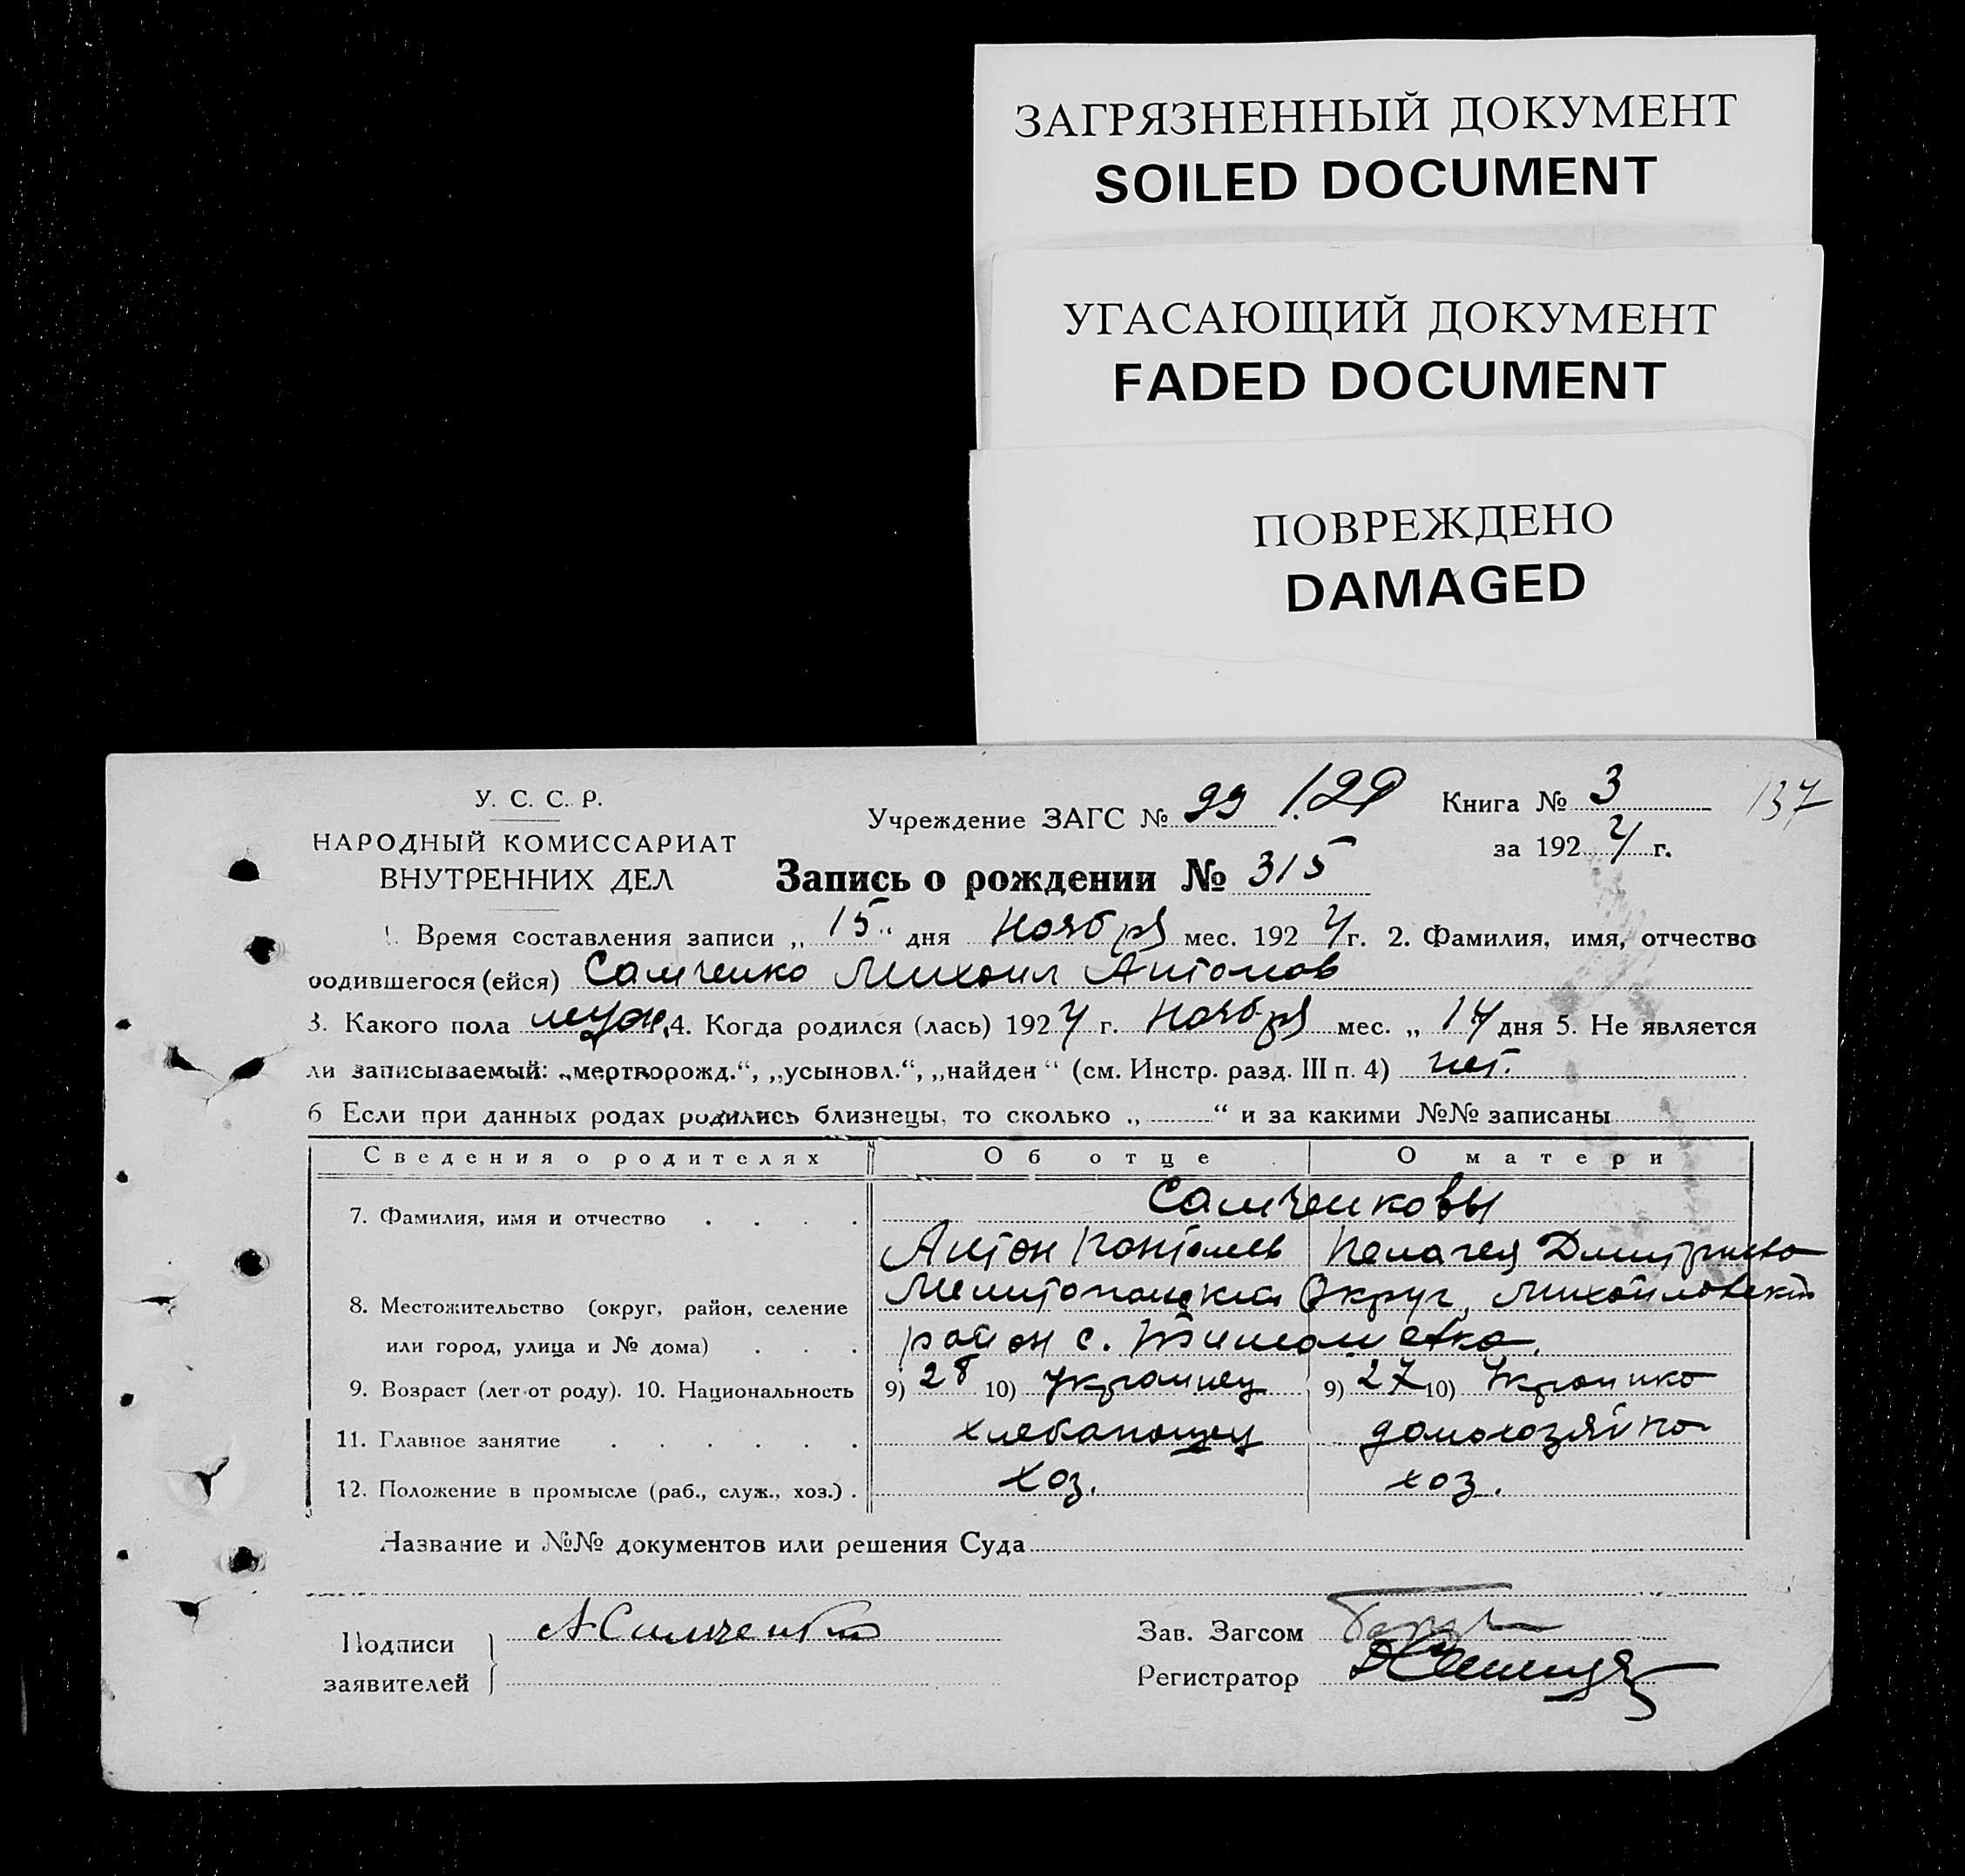 ЗАГРЯЗНЕННЫЙ ДОКУМЕНТ
SOILED DOCUMENT
УГАСАЮЩИЙ ДОКУМЕНТ
FADED DOCUMENT
ПОВРЕЖДЕНО
DAMAGED
У. С. С. Р.
НАРОДНЫЙ КОМИССАРИАТ
ВНУТРЕННИХ ДЕЛ
Учреждение ЗАГС № 99 129 Книга № 3 137
за 1924 г.
Запись о рождении № 315
1. Время составления записи „ 15 “ дня Ноября мес. 1924 г. 2. Фамилия, имя, отчество
родившегося (ейся) Самченко Михаил Антонов
3. Какого пола муж. 4. Когда родился (лась) 1924 г. Ноября мес. „ 14 дня 5. Не является
ли записываемый: „мертворожд.“, „усыновл.“, „найден“ (см. Инстр. разд. III п. 4) нет.
6 Если при данных родах родились близнецы, то сколько „ “ и за какими №№ записаны
Сведения о родителях Об отце О матери
7. Фамилия, имя и отчество Самченковы
Антон Пантелеев Пелагея Дмитриева
8. Местожительство (округ, район, селение Мелитопольский Округ, Михайловский
или город, улица и № дома) район с. Тимошевка.
9. Возраст (лет от роду). 10. Национальность 9) 28 10) украинец 9) 27 10) Украинка
11. Главное занятие хлебапошец домохозяйка
12. Положение в промысле (раб., служ., хоз.) хоз. хоз.
Название и №№ документов или решения Суда
Подписи А Самченко Зав. Загсом
заявителей Регистратор